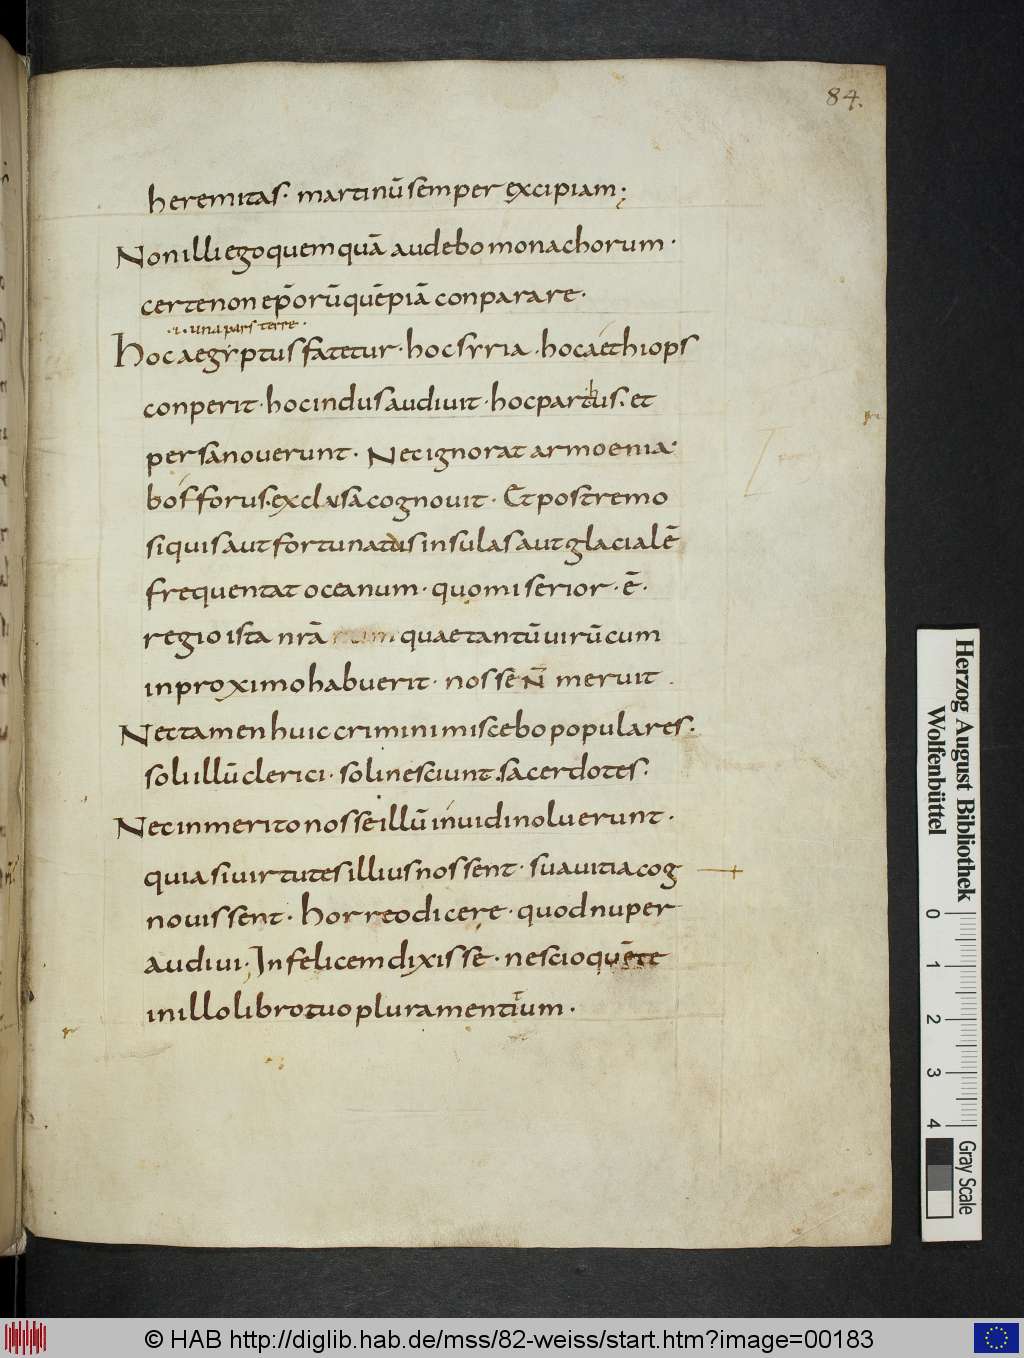 84.
heremitas· martinū semper excipiam;
Non illi ego quemquā audebo monachorum·
certe non ep̄orū quēpiā conparare·
·i· una pars terre·
Hoc aegyptus fatetur· hoc syria· hoc aethiops
conperit· hoc indus audivit· hoc parthus· et
persa noverunt· Nec ignorat armoenia·
bosforus· exclusa cognovit· Et postremo
si quis aut fortunatus insulas aut glacialē
frequentat oceanum· quo miserior· ē·
regio ista nrā quae tantū virū cum
in proximo habuerit· nosse n̄ meruit·
Nec tamen huic crimini miscebo populares·
soli illū clerici· soli nesciunt· sacerdotes·
Nec inmerito nosse illū invidi noluerunt·
quia si virtutes illius nossent· sua vitia cog
novissent· Horreo dicere· quod nuper
audivi· Infelicem dixisse· nescio quē te
in illo libro tuo plura mentitum·
Herzog August Bibliothek
Wolfenbüttel
0 1 2 3 4
Gray Scale
© HAB http://diglib.hab.de/mss/82-weiss/start.htm?image=00183